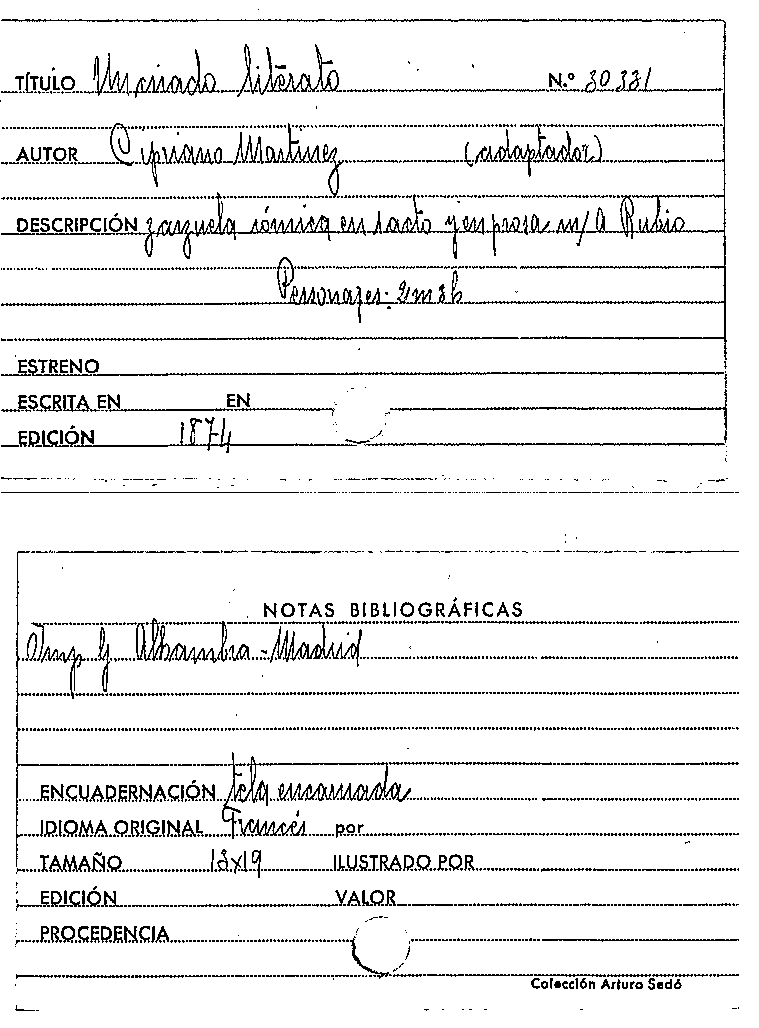 TÍTULO Un criado literato N.º 30331
AUTOR Cipriano Martinez (adaptador)
DESCRIPCIÓN zarzuela cómica en 1 acto y en prosa m/ A Rubio
Personajes: 2m3h
ESTRENO
ESCRITA EN EN
EDICIÓN 1874
NOTAS BIBLIOGRÁFICAS
Imp G. Alhambra - Madrid
ENCUADERNACIÓN tela encarnada
IDIOMA ORIGINAL Francés por
TAMAÑO 13x19 ILUSTRADO POR
EDICIÓN VALOR
PROCEDENCIA
Colección Arturo Sedó